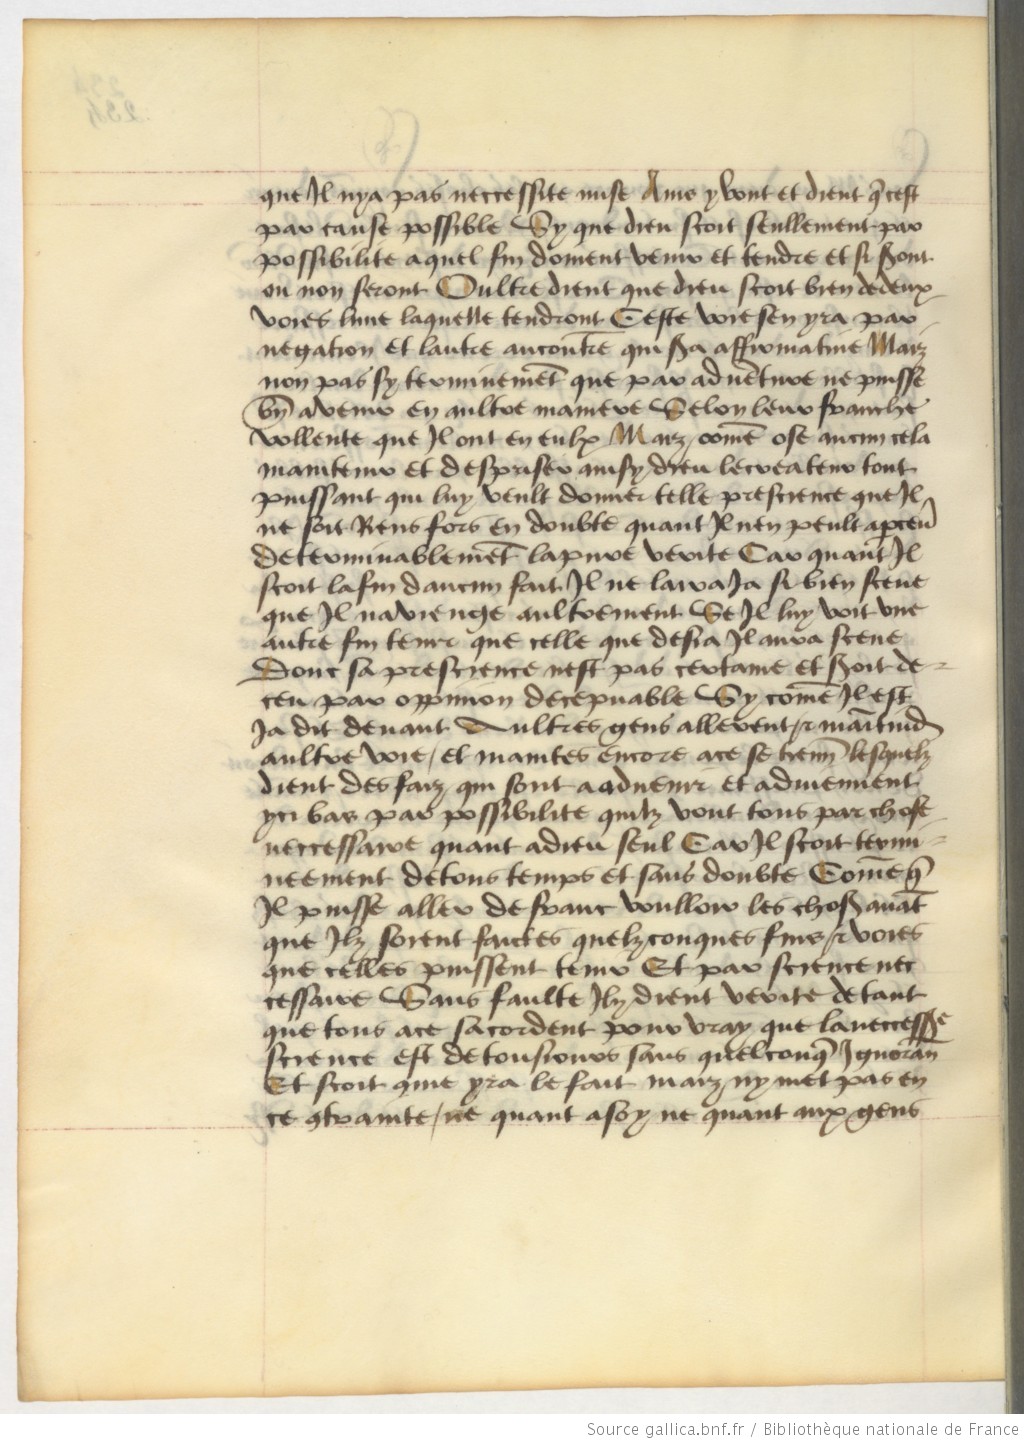 que Il nya pas neccessite mise Ains y vont et dient q̃ cest
par cause possible Sy que dieu scoit seullement par
possibilite aquel fin doiuent venir et tendre et si seront
ou non seront Oultre dient que dieu scoit bien de deux
voies lune laquelle tendront Ceste voie sen yra par
negation et lautre aucontre qui sera affirmatiue Maiz
non pas sy terminemẽt que par aduẽture ne puisse
bñ auenir en aultre maniere Selon leur franche
vollente que Il ont en eulx Maiz comẽ ose aucun cela
maintenir et despriser ainsy dieu le createur tout
puissant qui luy veult donner telle prescience que Il
ne soit Riens fors en doubte quant Il nen peult apceu
determinablemẽt la pure verite Car quant Il
scoit la fin daucun fait Il ne laura Ja si bien sceue
que Il nauienge aultrement Se Il luy voit vne
autre fin tenir que celle que desia Il aura sceue
Donc sa prescience nest pas certaine et seroit de-
ceu par oppinion decepuable Sy comẽ Il est
Ja dit deuant Aultres gens allerent
aultre voie / et maintes encore ace se tienñ lesquelz
dient des faiz qui sont aaduenir et aduiennent
yci bas par possibilite quilz vont tous par chose
neccessaire quant adieu seul Car Il scoit termi-
neement de tous temps et sans doubte Comẽ q̃
Il puisse aller de franc voulloir les choses auãt
que Ilz soient faictes quelzconques fins et voies
que celles puissent tenir Et par science nec
cessaire Sans faulte Ilz dient verite de tant
que tous ace sacordent pour vray que la neccessere
science est de tousiours sans quelconq̃ Ignorañ
Et scoit cõme yra le fait maiz ny met pas en
ce ꝯtrainte / ne quant asoy ne quant aux gens
Source gallica.bnf.fr / Bibliothèque nationale de France